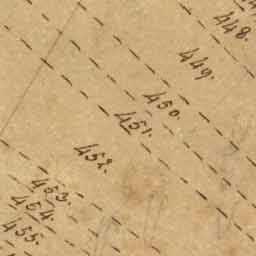 448.
449.
450.
451.
452.
453.
454.
455.